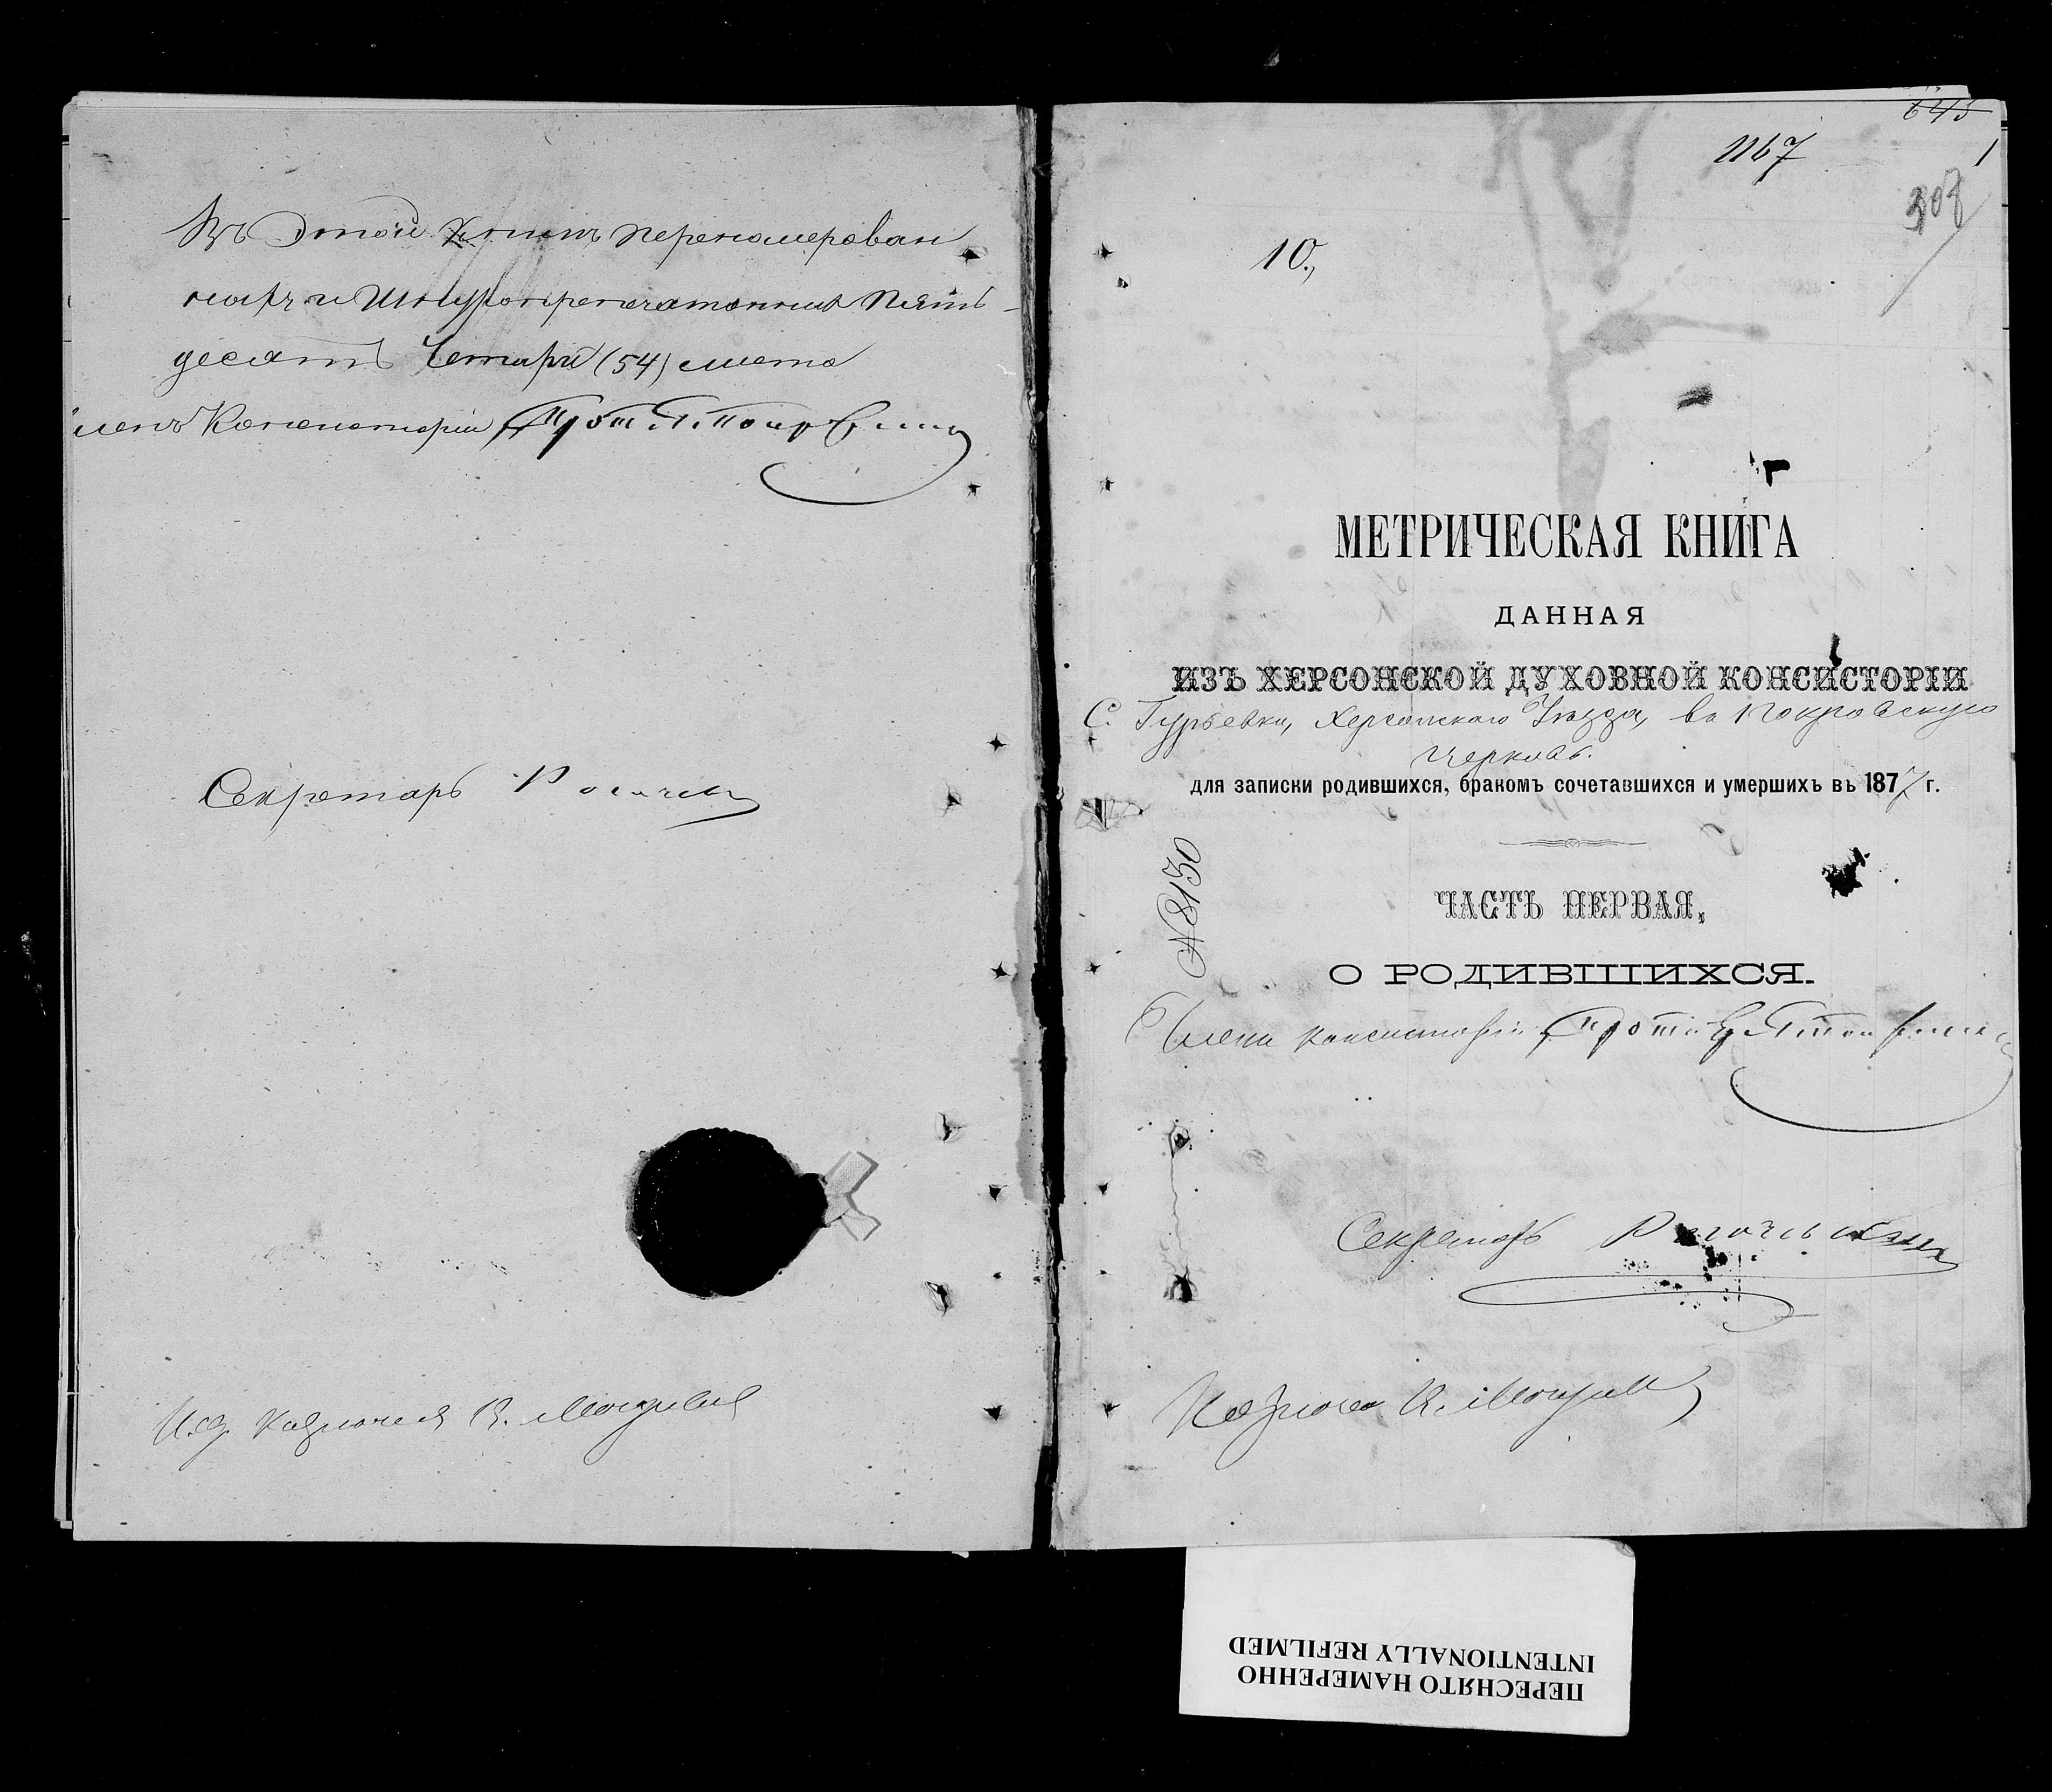 Въ этой книгѣ перенумерован
ныхъ и шнуропрепечатанныхъ пять-
десятъ четыри (54) листа
членъ Консисторіи Прот.
Секретарь
И.д. казначея В.
645
1167
1
10.,
МЕТРИЧЕСКАЯ КНИГА
ДАННАЯ
ИЗЪ ХЕРСОНСКОЙ ДУХОВНОЙ КОНСИСТОРІИ
С. Гурьевки, Херсонскаго Уѣзда, въ Покровскую
Церковь.
для записки родившихся, бракомъ сочетавшихся и умершихъ въ 1877 г.
№ 8130
ЧАСТЬ ПЕРВАЯ,
О РОДИВШИХСЯ.
Членъ консисторіи Прот.
Секретарь
Казначей В.
ПЕРЕСНЯТО НАМЕРЕННО
INTENTIONALLY REFILMED